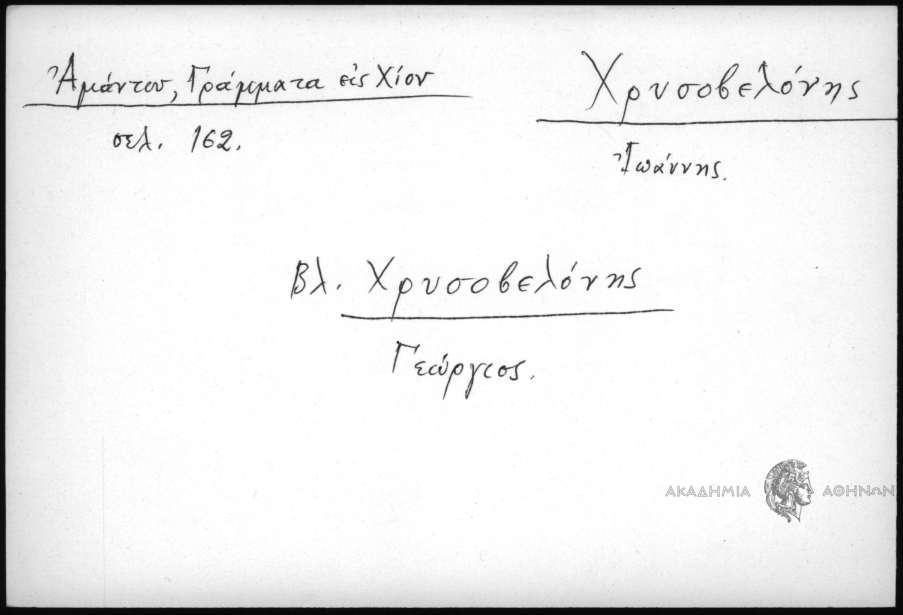 Ἀμάντου, Γράμματα εἰς Χίον
σελ. 162.
Χρυσοβελόνης
Ἰωάννης.
Βλ. Χρυσοβελόνης
Γεώργιος.
ΑΚΑΔΗΜΙΑ ΑΘΗΝΩΝ